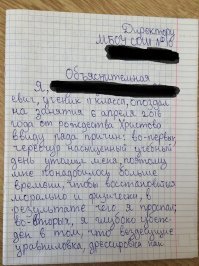 Директору
МБОУ СОШ №18
Объяснительная
Я,
евич, ученик 11 класса, опоздал
на занятия 6 апреля 2016
года от рождества Христова
ввиду ряда причин: во-первых,
чересчур насыщенный учебный
день утомил меня, поэтому
мне понадобилось больше
времени, чтобы восстановиться
морально и физически, в
результате чего, я проспал;
во-вторых, я глубоко убеж-
ден в том, что вездесущие
уравниловка, дрессировка и